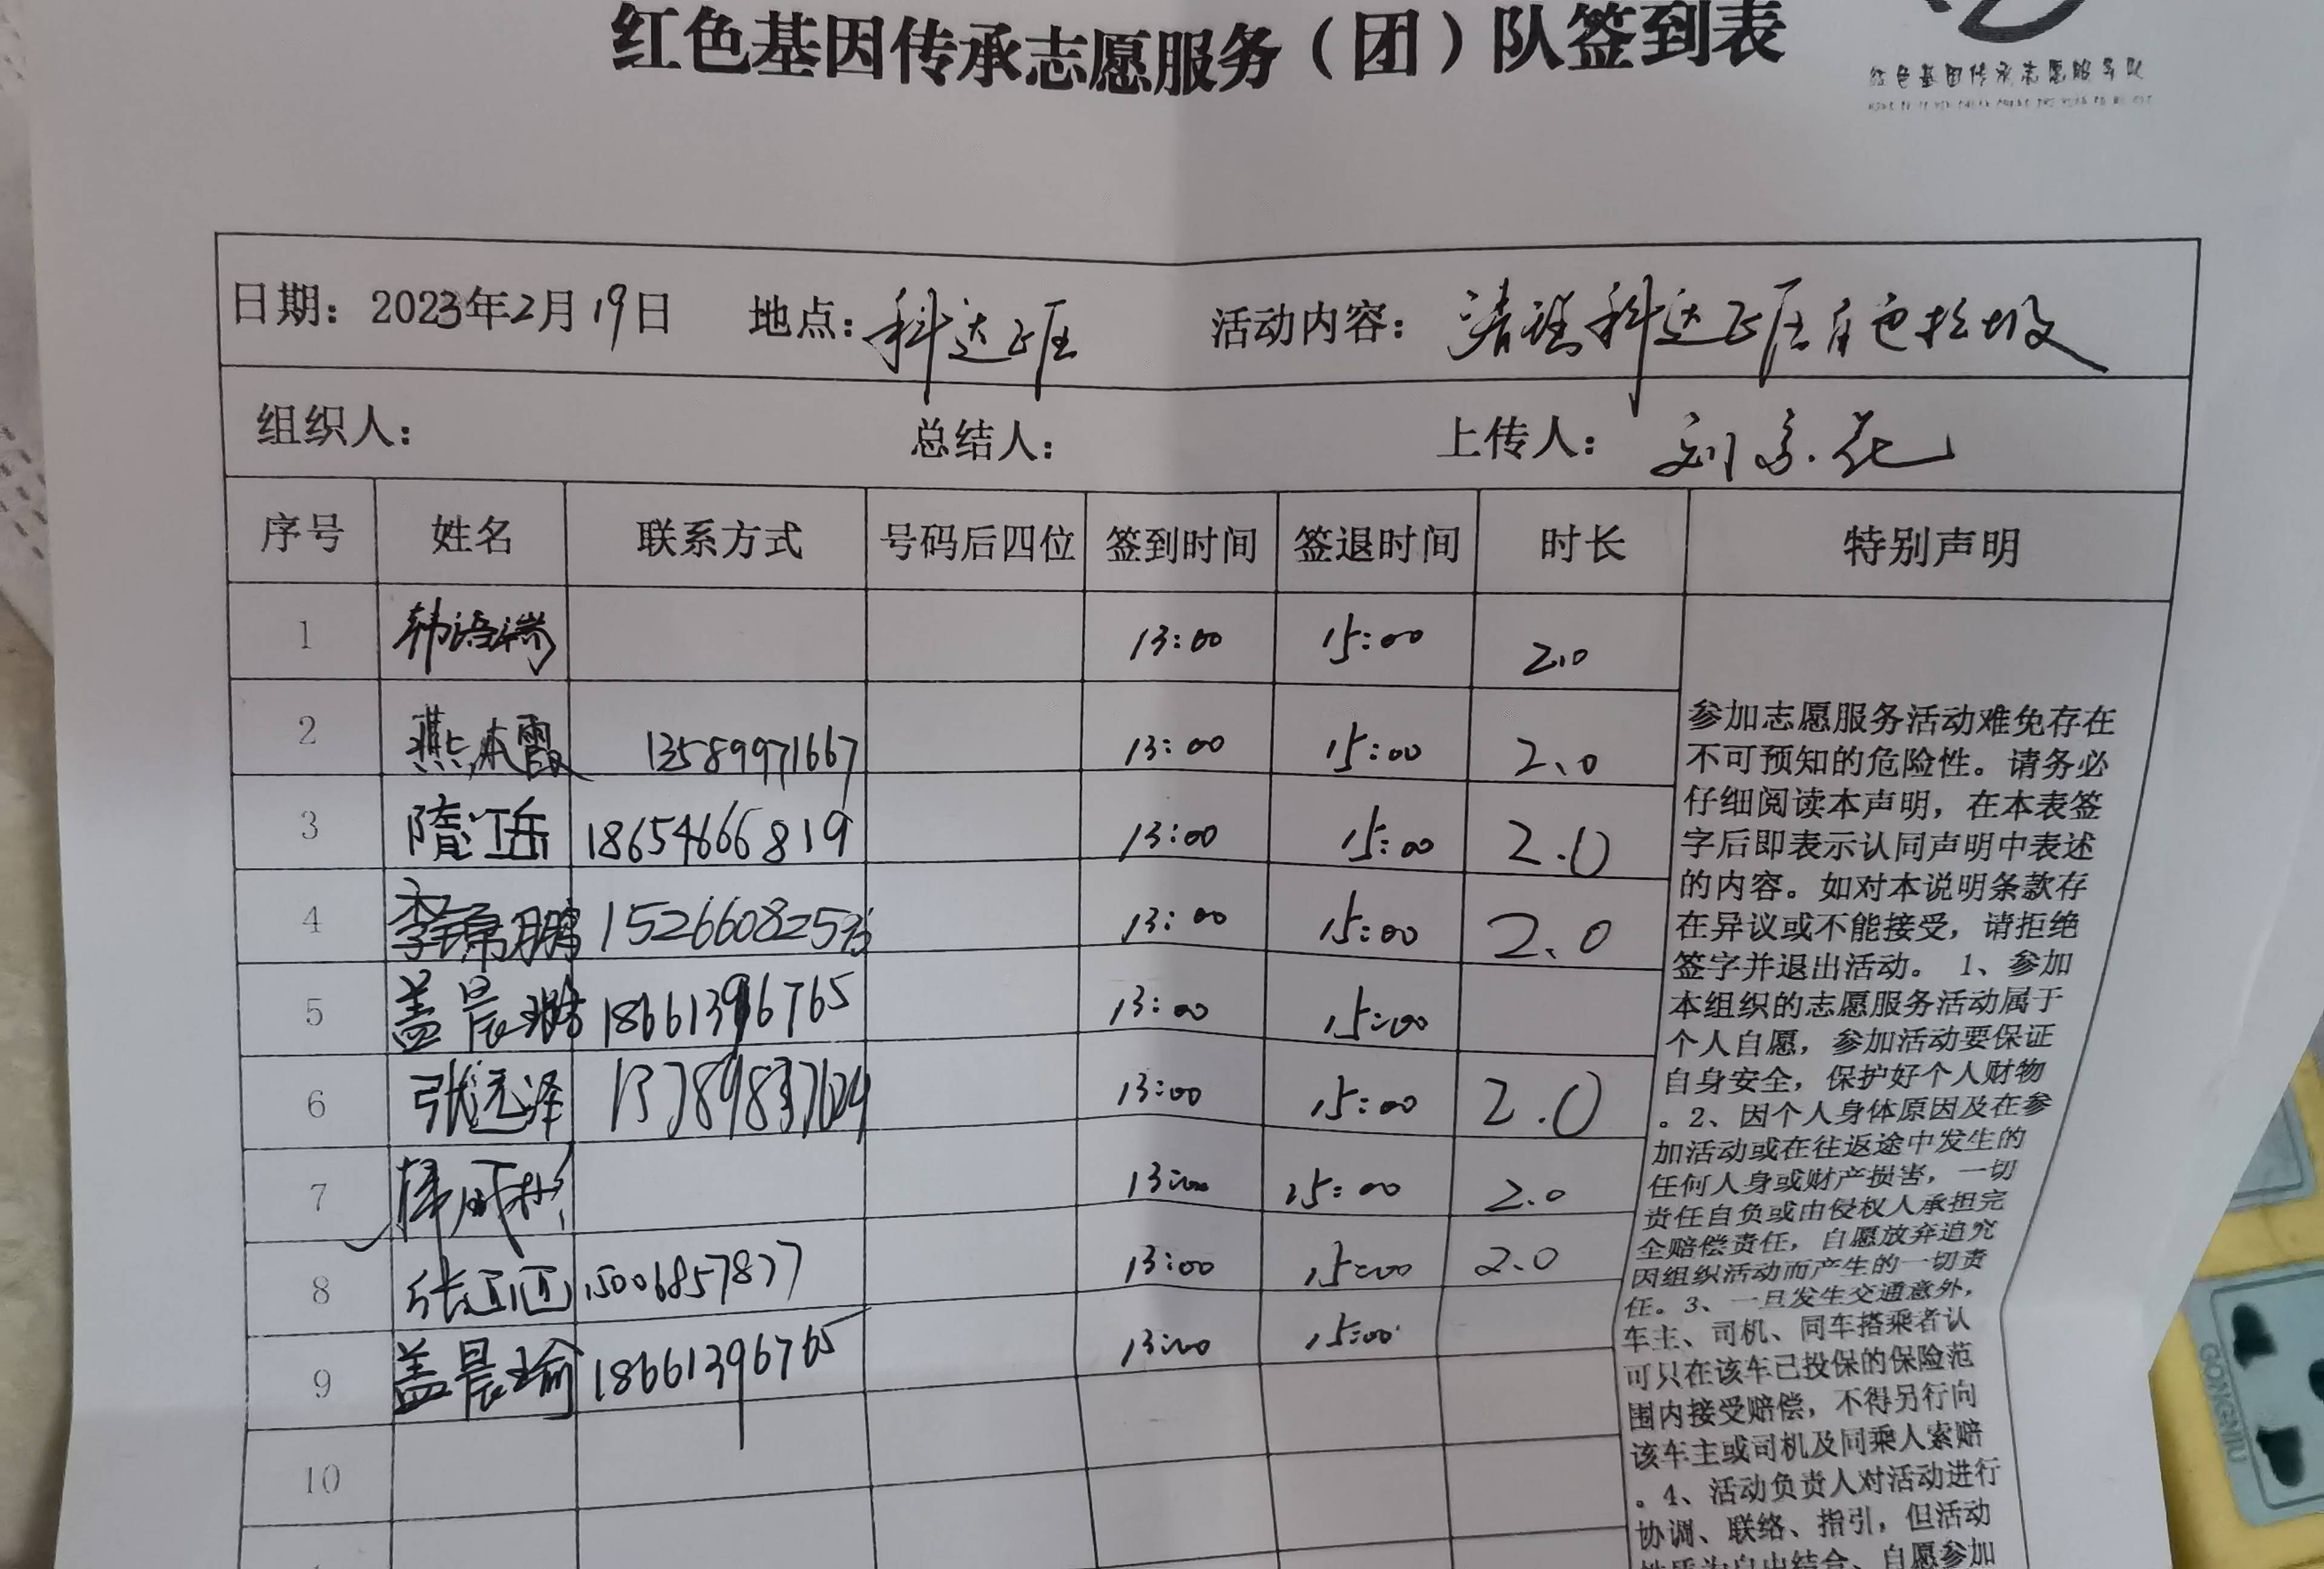 红色基因传承志愿服务（团）队签到表
红色基因传承志愿服务队
日期：2023年2月19日 地点：科达班 活动内容：清理科达班白色垃圾
组织人： 总结人： 上传人：刘
序号 姓名 联系方式 号码后四位 签到时间 签退时间 时长 特别声明
1 韩语端 13:00 15:00 2.0
2 燕本霞 13589971667 13:00 15:00 2.0
3 隋江岳 18654666819 13:00 15:00 2.0
4 李锦鹏 152660825 13:00 15:00 2.0
5 盖晨璐 18661396765 13:00 15:00
6 张远泽 13:00 15:00 2.0
7 13:00 15:00 2.0
8 张 15006857877 13:00 15:00 2.0
9 盖晨瑜 18661396765 13:00 15:00
10
参加志愿服务活动难免存在
不可预知的危险性。请务必
仔细阅读本声明，在本表签
字后即表示认同声明中表述
的内容。如对本说明条款存
在异议或不能接受，请拒绝
签字并退出活动。 1、参加
本组织的志愿服务活动属于
个人自愿，参加活动要保证
自身安全，保护好个人财物
。2、因个人身体原因及在参
加活动或在往返途中发生的
任何人身或财产损害，一切
责任自负或由侵权人承担完
全赔偿责任，自愿放弃追究
因组织活动而产生的一切责
任。3、一旦发生交通意外，
车主、司机、同车搭乘者认
可只在该车已投保的保险范
围内接受赔偿，不得另行向
该车主或司机及同乘人索赔
。4、活动负责人对活动进行
协调、联络、指引，但活动
性质为自由结合、自愿参加
GONGNIU